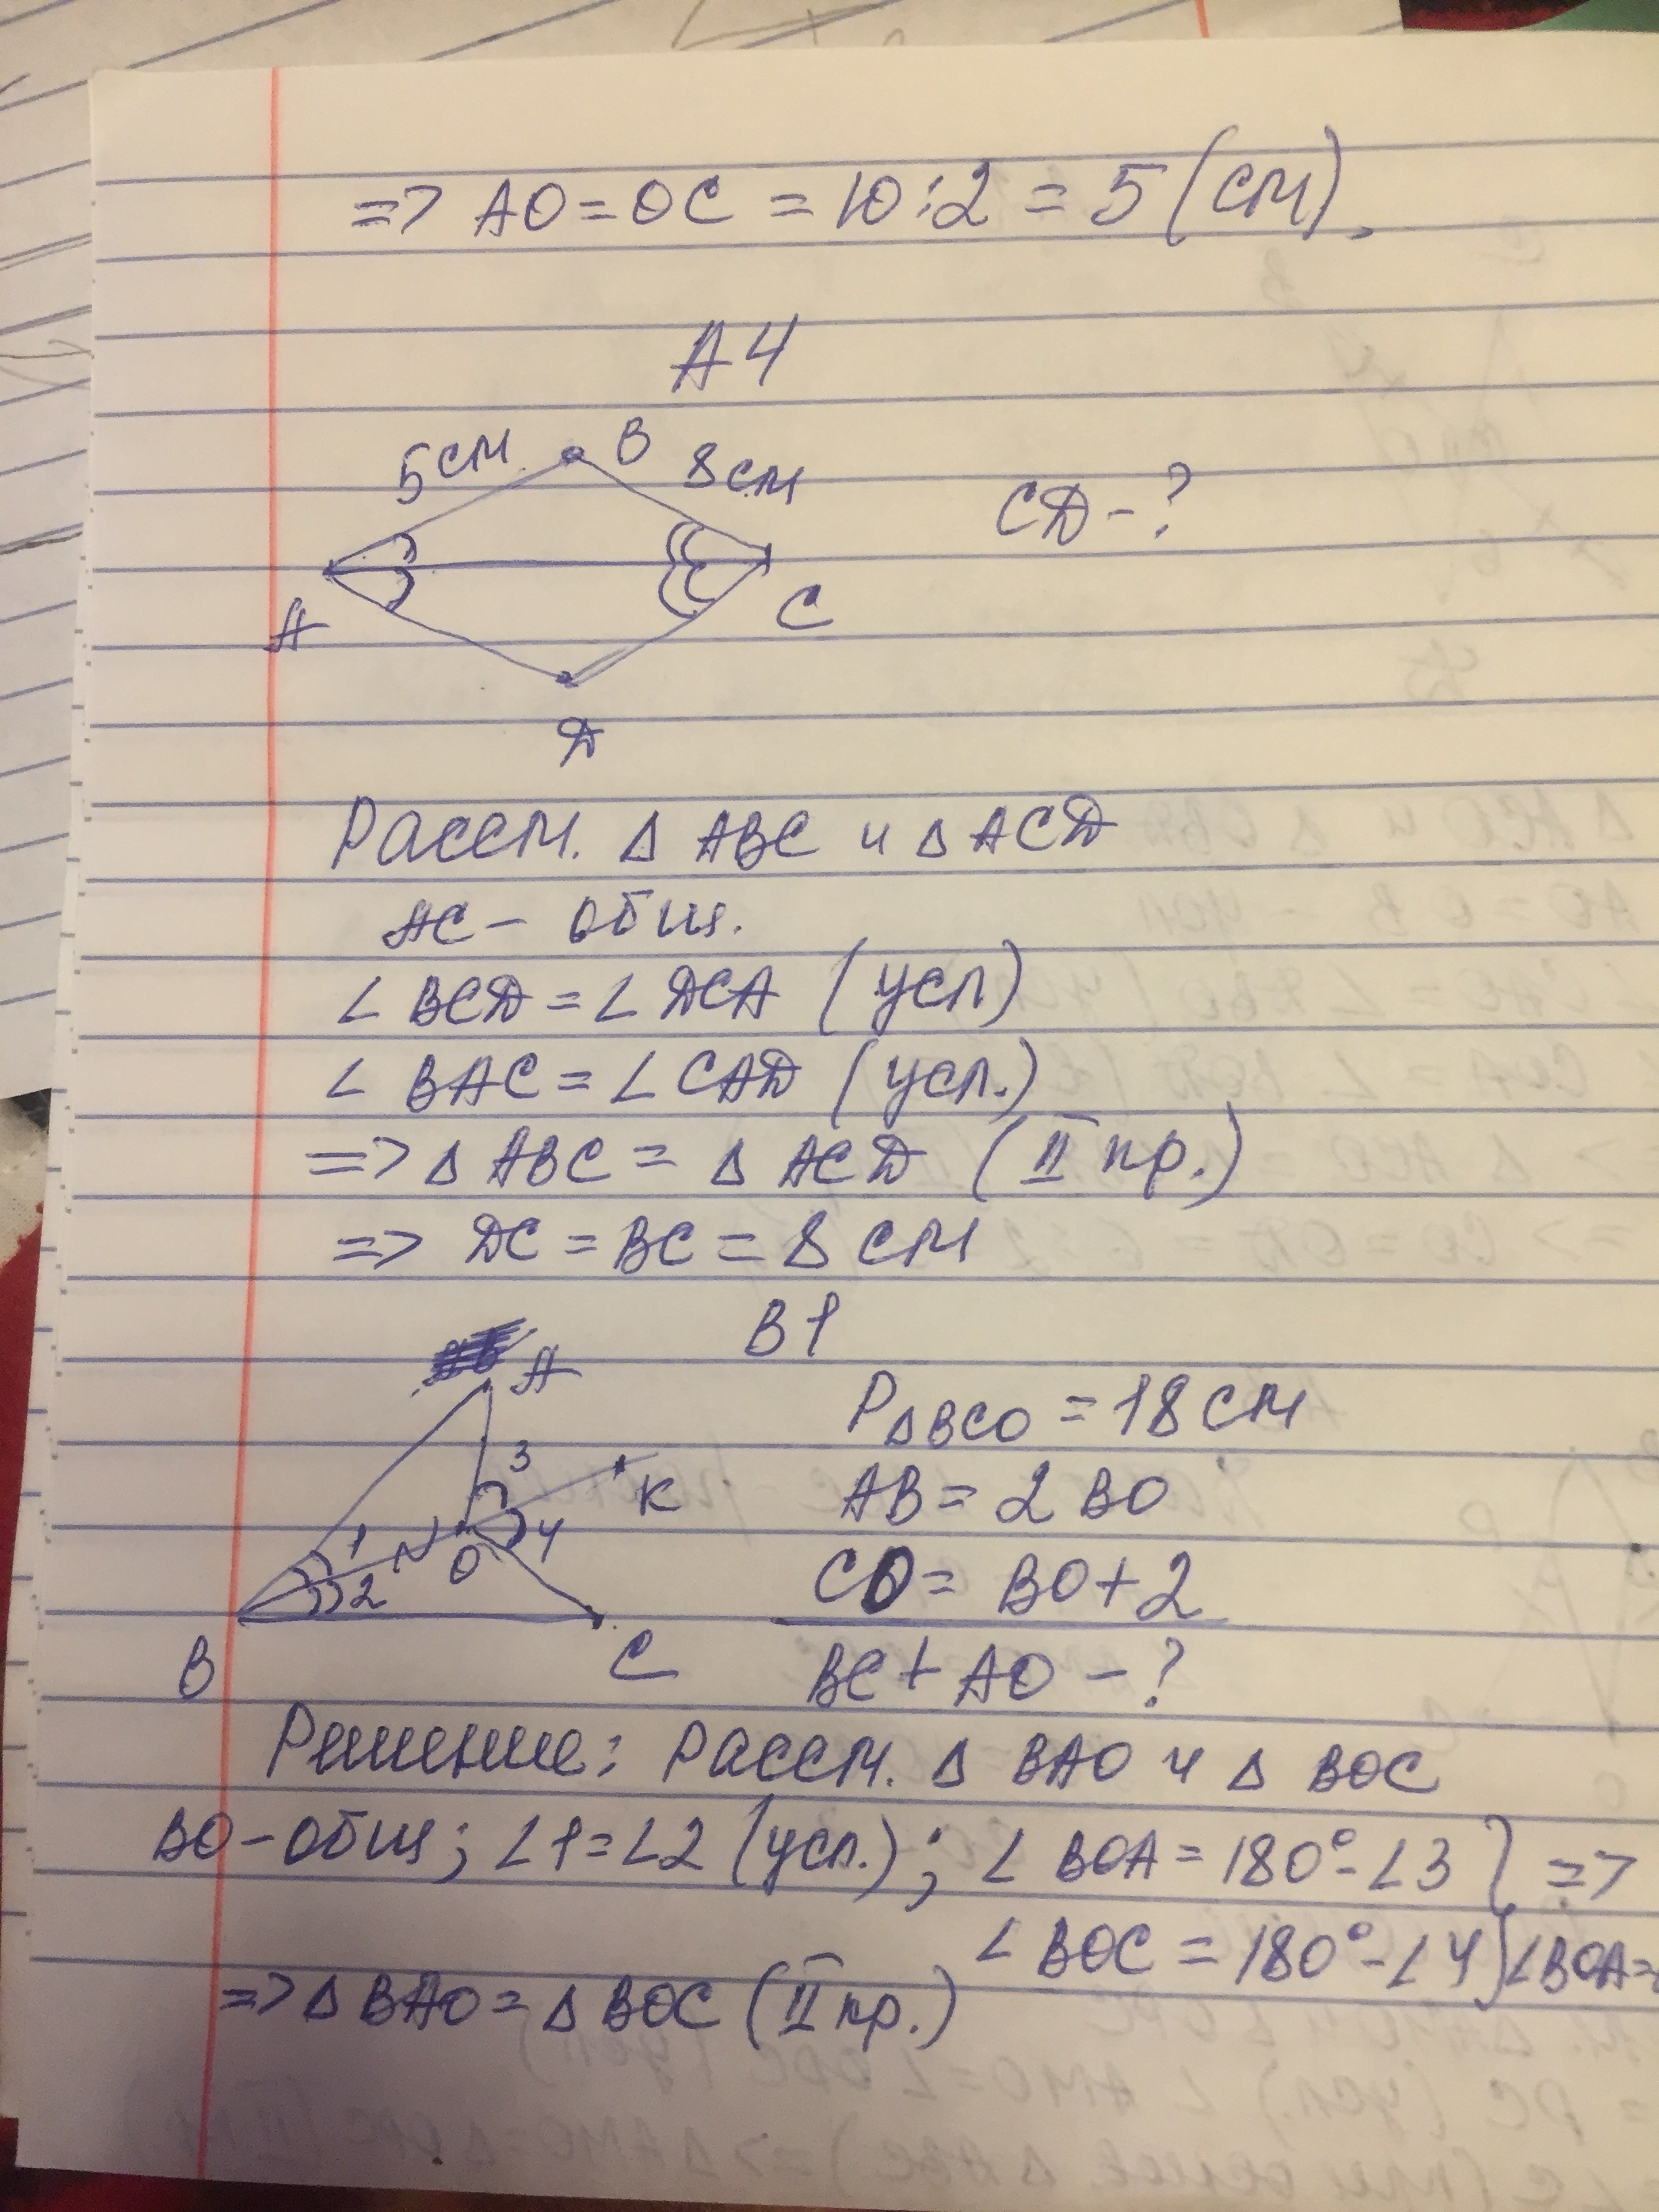 => AO = OC = 10:2 = 5 (см).
A4
5 см B 8 см
CD - ?
A C
D
Рассм. Δ ABC и Δ ACD
AC - общ.
∠ BCD = ∠ DCA (усл)
∠ BAC = ∠ CAD (усл.)
=> Δ ABC = Δ ACD (II пр.)
=> DC = BC = 8 см
B1
A
P ΔBCO = 18 см
3
K
AB = 2 BO
1 O 4
2
CO = BO + 2
B C
BC + AO - ?
Решение: Рассм. Δ BAO и Δ BOC
BO - общ; ∠1 = ∠2 (усл.); ∠ BOA = 180° - ∠3 } =>
∠ BOC = 180° - ∠4 } ∠BOA =
=> Δ BAO = Δ BOC (II пр.)